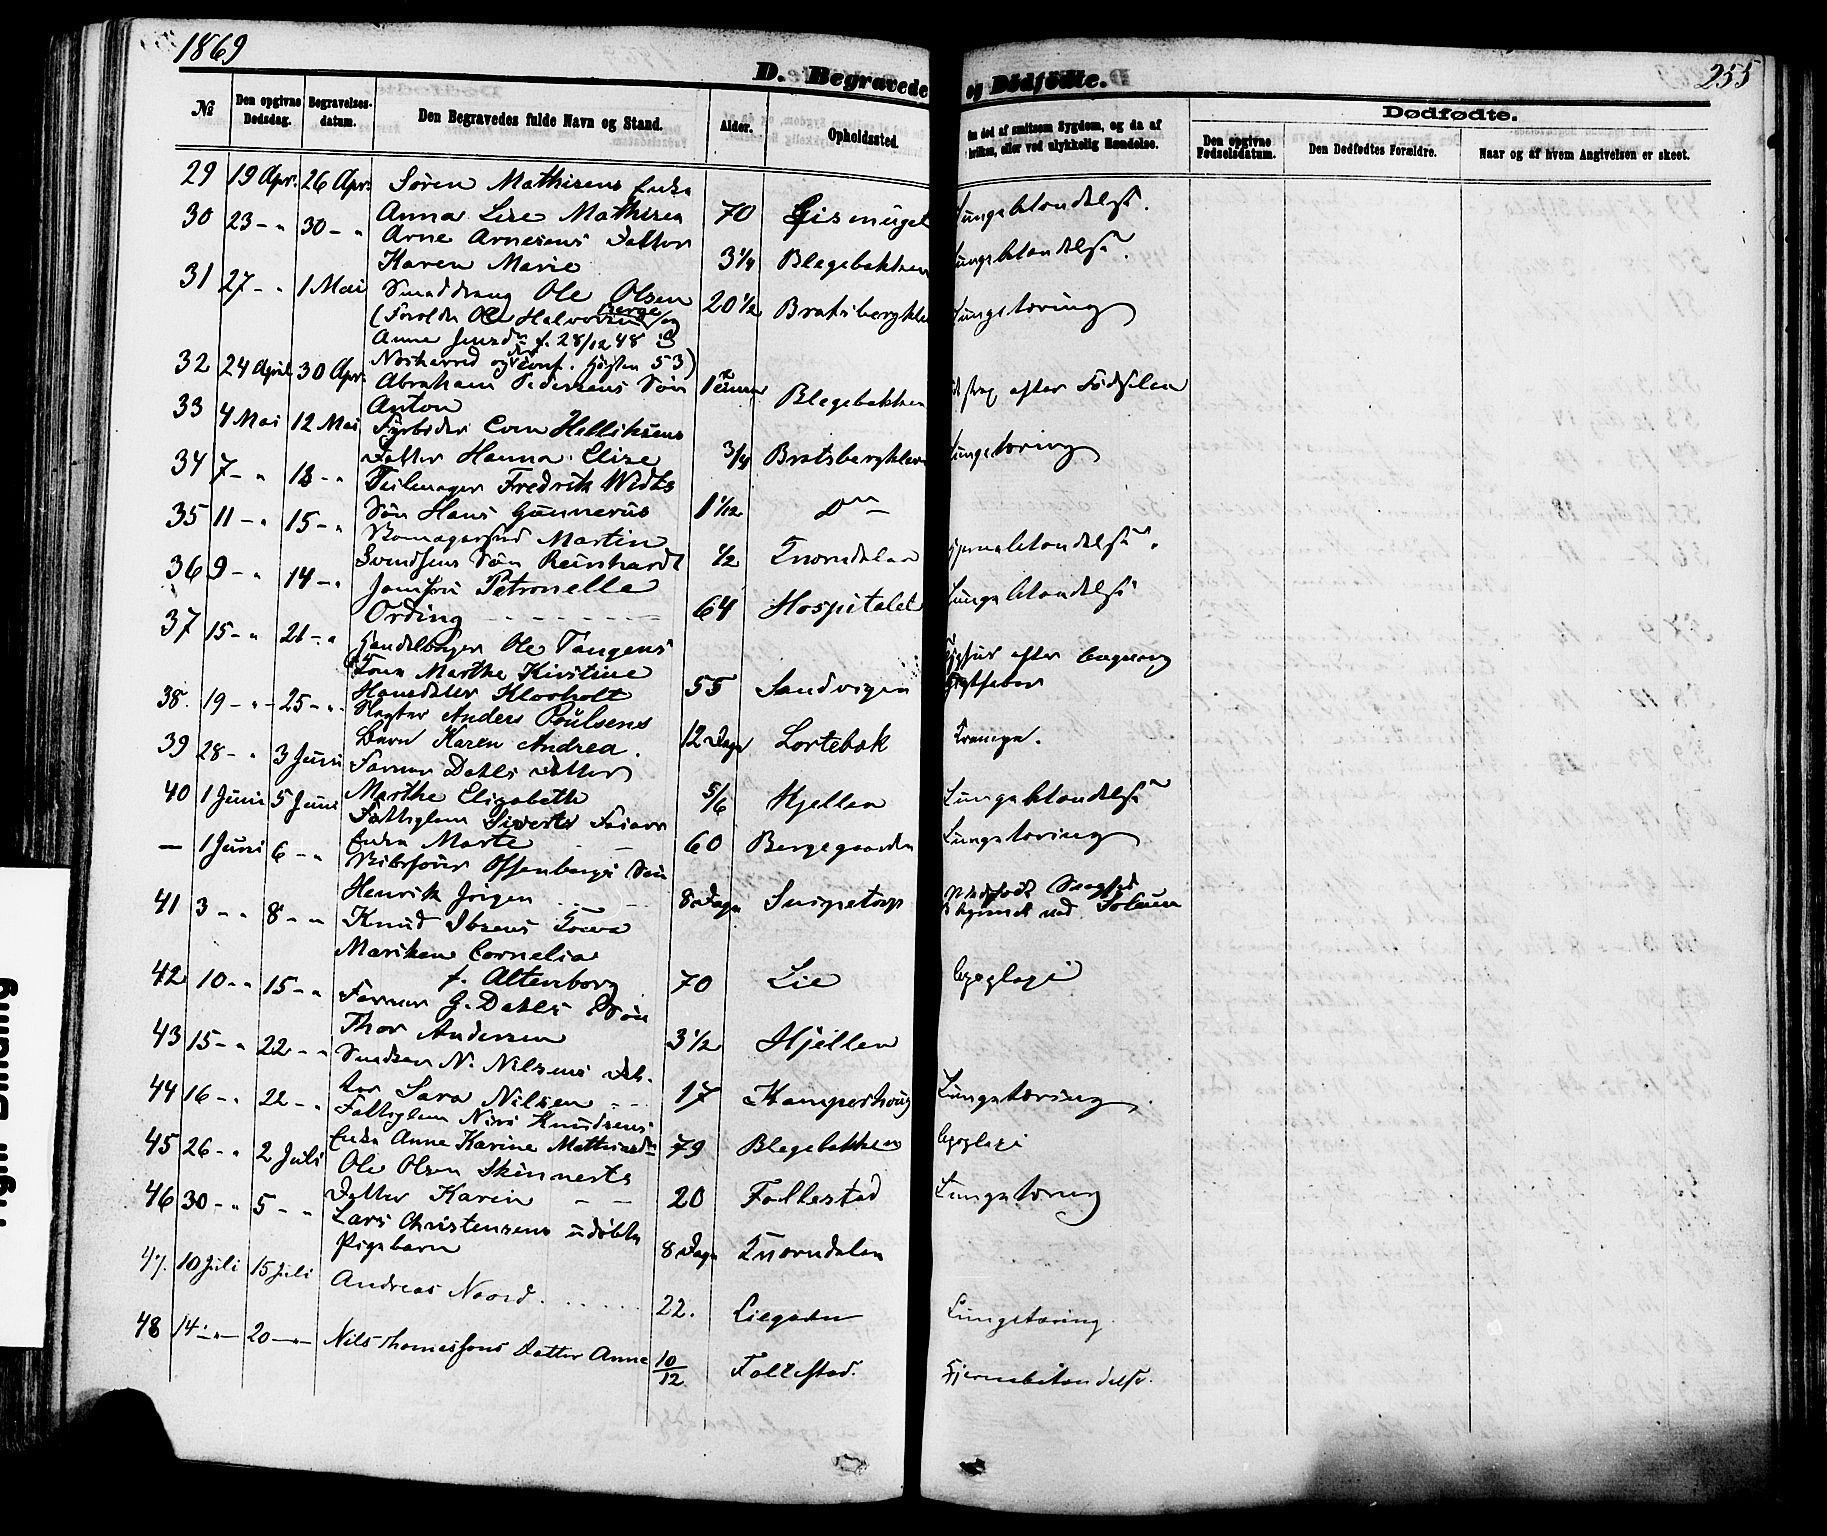 1869
255
D. Begravede og Dødfødte.
№
Den opgivne Dødsdag.
Begravelses-datum.
Den Begravedes fulde Navn og Stand.
Alder.
Opholdssted.
død af smitsom Sygdom, og da af
hvilken, eller ved ulykkelig Hændelse.
Dødfødte.
Den opgivne Fødselsdatum.
Den Dødfødtes Forældre.
Naar og af hvem Angivelsen er skeet.
29 19 Apr. 26 Apr. Søren Mathisens Enke
Anna Lise Mathisen 70 Lungebetændelse.
30 23 - " 30 - " Arne Arnesens Datter
Karen Marie 3 1/4 Blegebakken Lungebetændelse.
31 27 - " 1 Mai Smeddreng Ole Olsen 20 1/2 Bratsbergklev Lungetæring
(Forældre Ole Halvorsen Berge og
Anne Jensdr f. 28/12 48
conf. Høsten 53)
32 24 April 30 Apr. Abraham Pedersens Søn
Anton Blegebakken strax efter Fødselen
33 4 Mai 12 Mai Fyrbøder Even Helliksens
Datter Hanna Elise 3/4 Bratsbergklev Lungetæring
34 7 - " 13 - " Seilmager Fredrik Widts
Søn Hans Gunnerus 1 1/12 Do
35 11 - " 15 - " Martin
Svendsens Søn Reinhardt 1/2 Tværndalen Hjernebetændelse.
36 9 - " 14 - " Jomfru Petronelle
Ording 64 Hospitalet Lungebetændelse
37 15 - " 21 - " Handelsborger Ole Tangens
Kone Marthe Kirstine
Hansdatter Klovholt 55 Sandvigen
38. 19 - " 25 - " Slagter Anders Poulsens
Barn Karen Andrea. 12 Dage Lortebæk Krampe.
39 28 - " 3 Juni Farver Dahls Datter
Marthe Elisabeth 5/6 Hjellen Lungebetændelse
40 1 Juni 5 Juni Fattiglem Siverts
Enke Marte 60 Bergegaarden Lungetæring
— 1 Juni 6 - " Offenbergs Søn
Henrik Jørgen 8 Dage Snipetorp Solum
41 3 - " 8 - " Knud Ibsens Kone
Mariken Cornelia
f. Altenborg 70 Lie Apoplexi
42 10 - " 15 - " Farver G. Dahls Søn
Thor Andersen 3 1/2 Hjellen
43 15 - " 22 - " N. Nilsens Dat-
ter Sara Nilsen 17 Kamperhoug Lungetæring
44 16 - " 22 - " Fattiglem Knudsens
Enke Anne Karine Mathisdr 79 Blegebakken Apoplexi
45 26 - " 2 Juli Ole Olsen Skinnerts
Datter Karen 20 Follestad Lungetæring
46 30 - " 5 - " Lars Christensens udøbte
Pigebarn 8 Dage Tværndalen
47. 10 Juli 15 Juli Andreas Noord. 22. Liegaden Lungetæring.
48 14 - " - 20 - " - Nils Thomessons Datter Anne 10/12 Follestad. Hjernebetændelse.